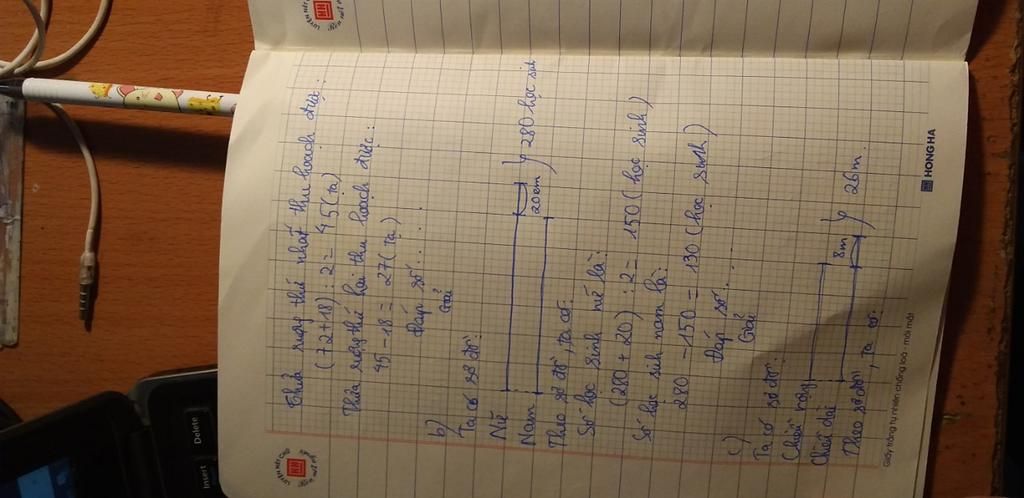 Thửa ruộng thứ nhất thu hoạch được:
(72+18) : 2 = 45 (tạ)
Thửa ruộng thứ hai thu hoạch được:
45 - 18 = 27 (tạ)
Đáp số: ...
b) Giải
Ta có sơ đồ:
Nữ
Nam
20 em
280 học sinh
Theo sơ đồ, ta có:
Số học sinh nữ là:
(280 + 20) : 2 = 150 (học sinh)
Số học sinh nam là:
280 - 150 = 130 (học sinh)
Đáp số: ...
c) Giải
Ta có sơ đồ:
Chiều rộng
Chiều dài
8m
26m.
Theo sơ đồ, ta có:
Giấy trắng tự nhiên chống lóa - mỏi mắt
HONG HA
LUYỆN NÉT CHỮ
RÈN NẾT NGƯỜI
Insert
Delete